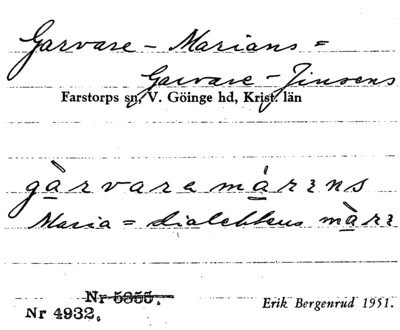 Garvare - Marians =
Garvare - Jinsens
Farstorps sn, V. Göinge hd, Krist. län
gàrvaramárɪns
Maria = dialektens màrɪ
Nr 5355.
Nr 4932.
Erik Bergenrud 1951.